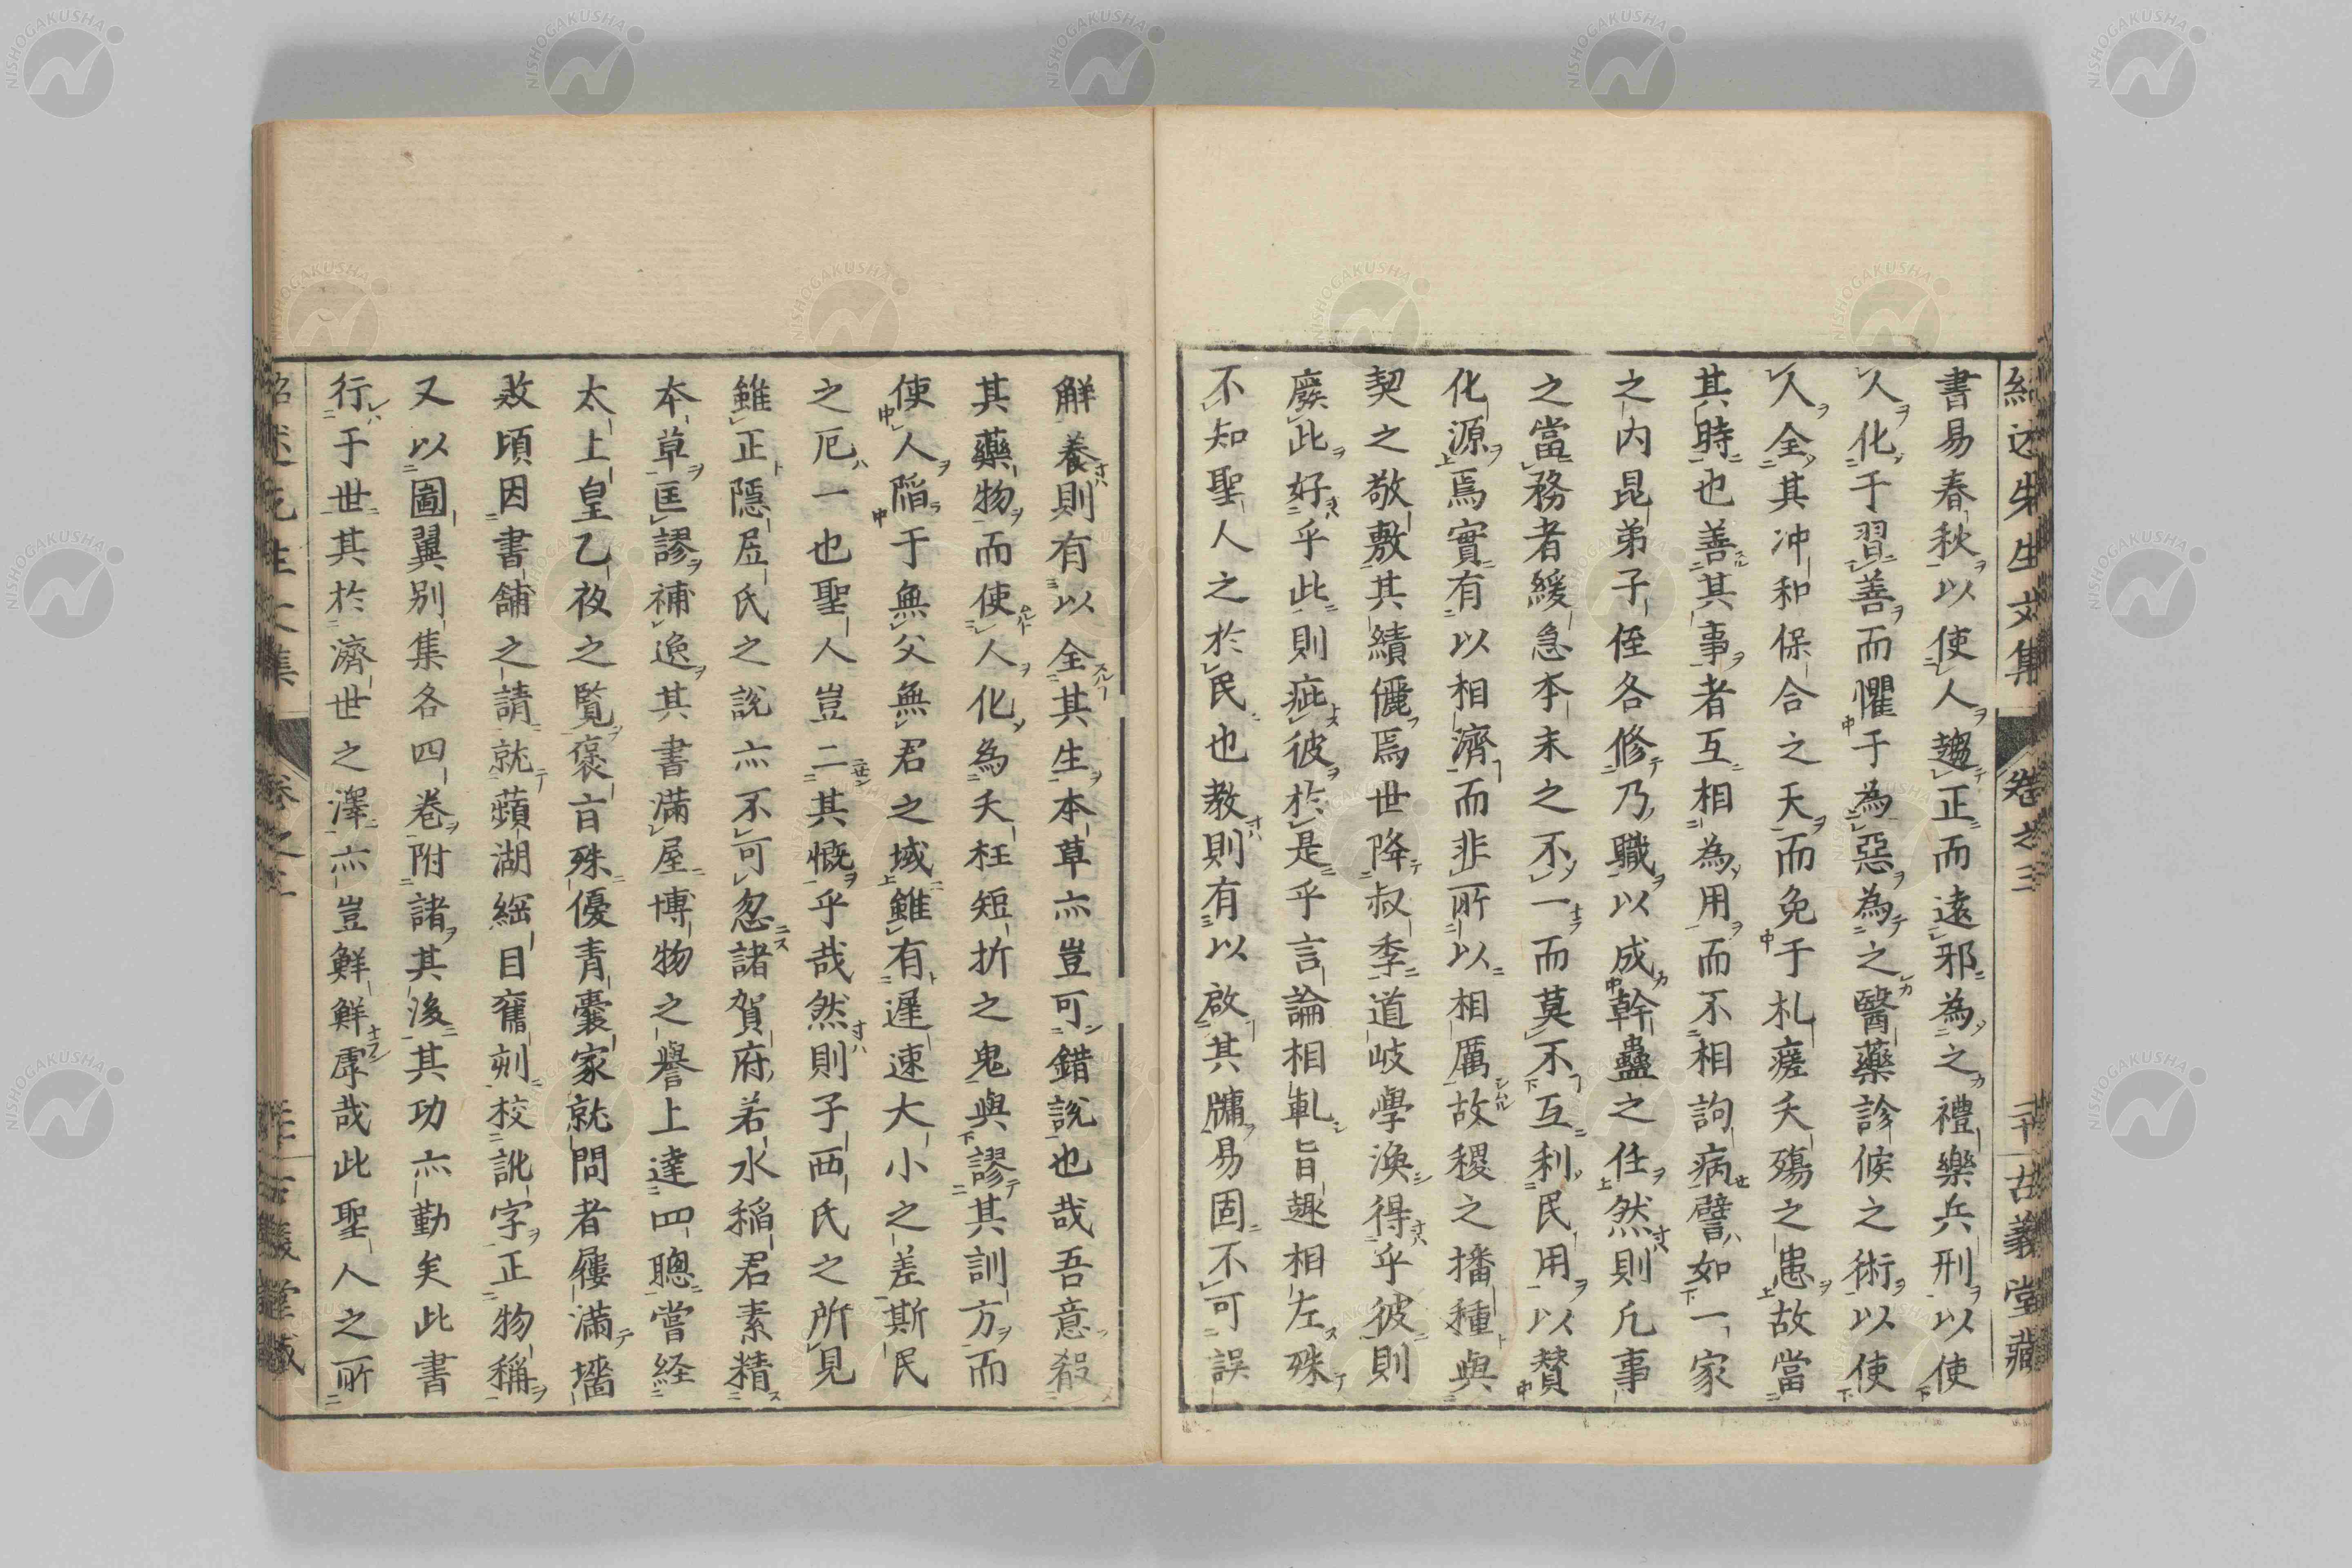 紹述先生文集 卷之三 二十 古義堂藏
書易春秋以使人趨正而遠邪為之禮樂兵刑以使
人化于習善而懼于為惡為之醫藥診候之術以使
人全其冲和保合之天而免于札瘥夭殤之患故當
其時也善其事者互相為用而不相詢病譬如一家
之内昆弟子侄各修乃職以成幹蠱之任然則凢事
之當務者緩急本末之不一而莫不互利民用以賛
化源焉實有以相濟而非所以相厲故稷之播種與
契之敬敷其績儷焉世降叔季道岐學渙得乎彼則
廢此好乎此則疵彼於是乎言論相軋旨趣相左殊
不知聖人之於民也教則有以啟其牖易固不可誤
觧養則有以全其生本草亦豈可錯説也哉吾意殺
其藥物而使人化為夭枉短折之鬼與謬其訓方而
使人陷于無父無君之域雖有遅速大小之差斯民
之厄一也聖人豈二其慨乎哉然則子西氏之所見
雖正隠居氏之説亦不可忽諸賀府若水稲君素精
本草匡謬補逸其書滿屋博物之譽上達四聰嘗経
太上皇乙夜之覧褒言殊優青囊家就問者屨滿墻
敗頃因書舗之請就蘋湖綱目舊刻校訛字正物稱
又以圖翼別集各四卷附諸其後其功亦勤矣此書
行于世其於濟世之澤亦豈鮮鮮虖哉此聖人之所
紹述先生文集 卷之三 古義堂藏
NISHOGAKUSHA